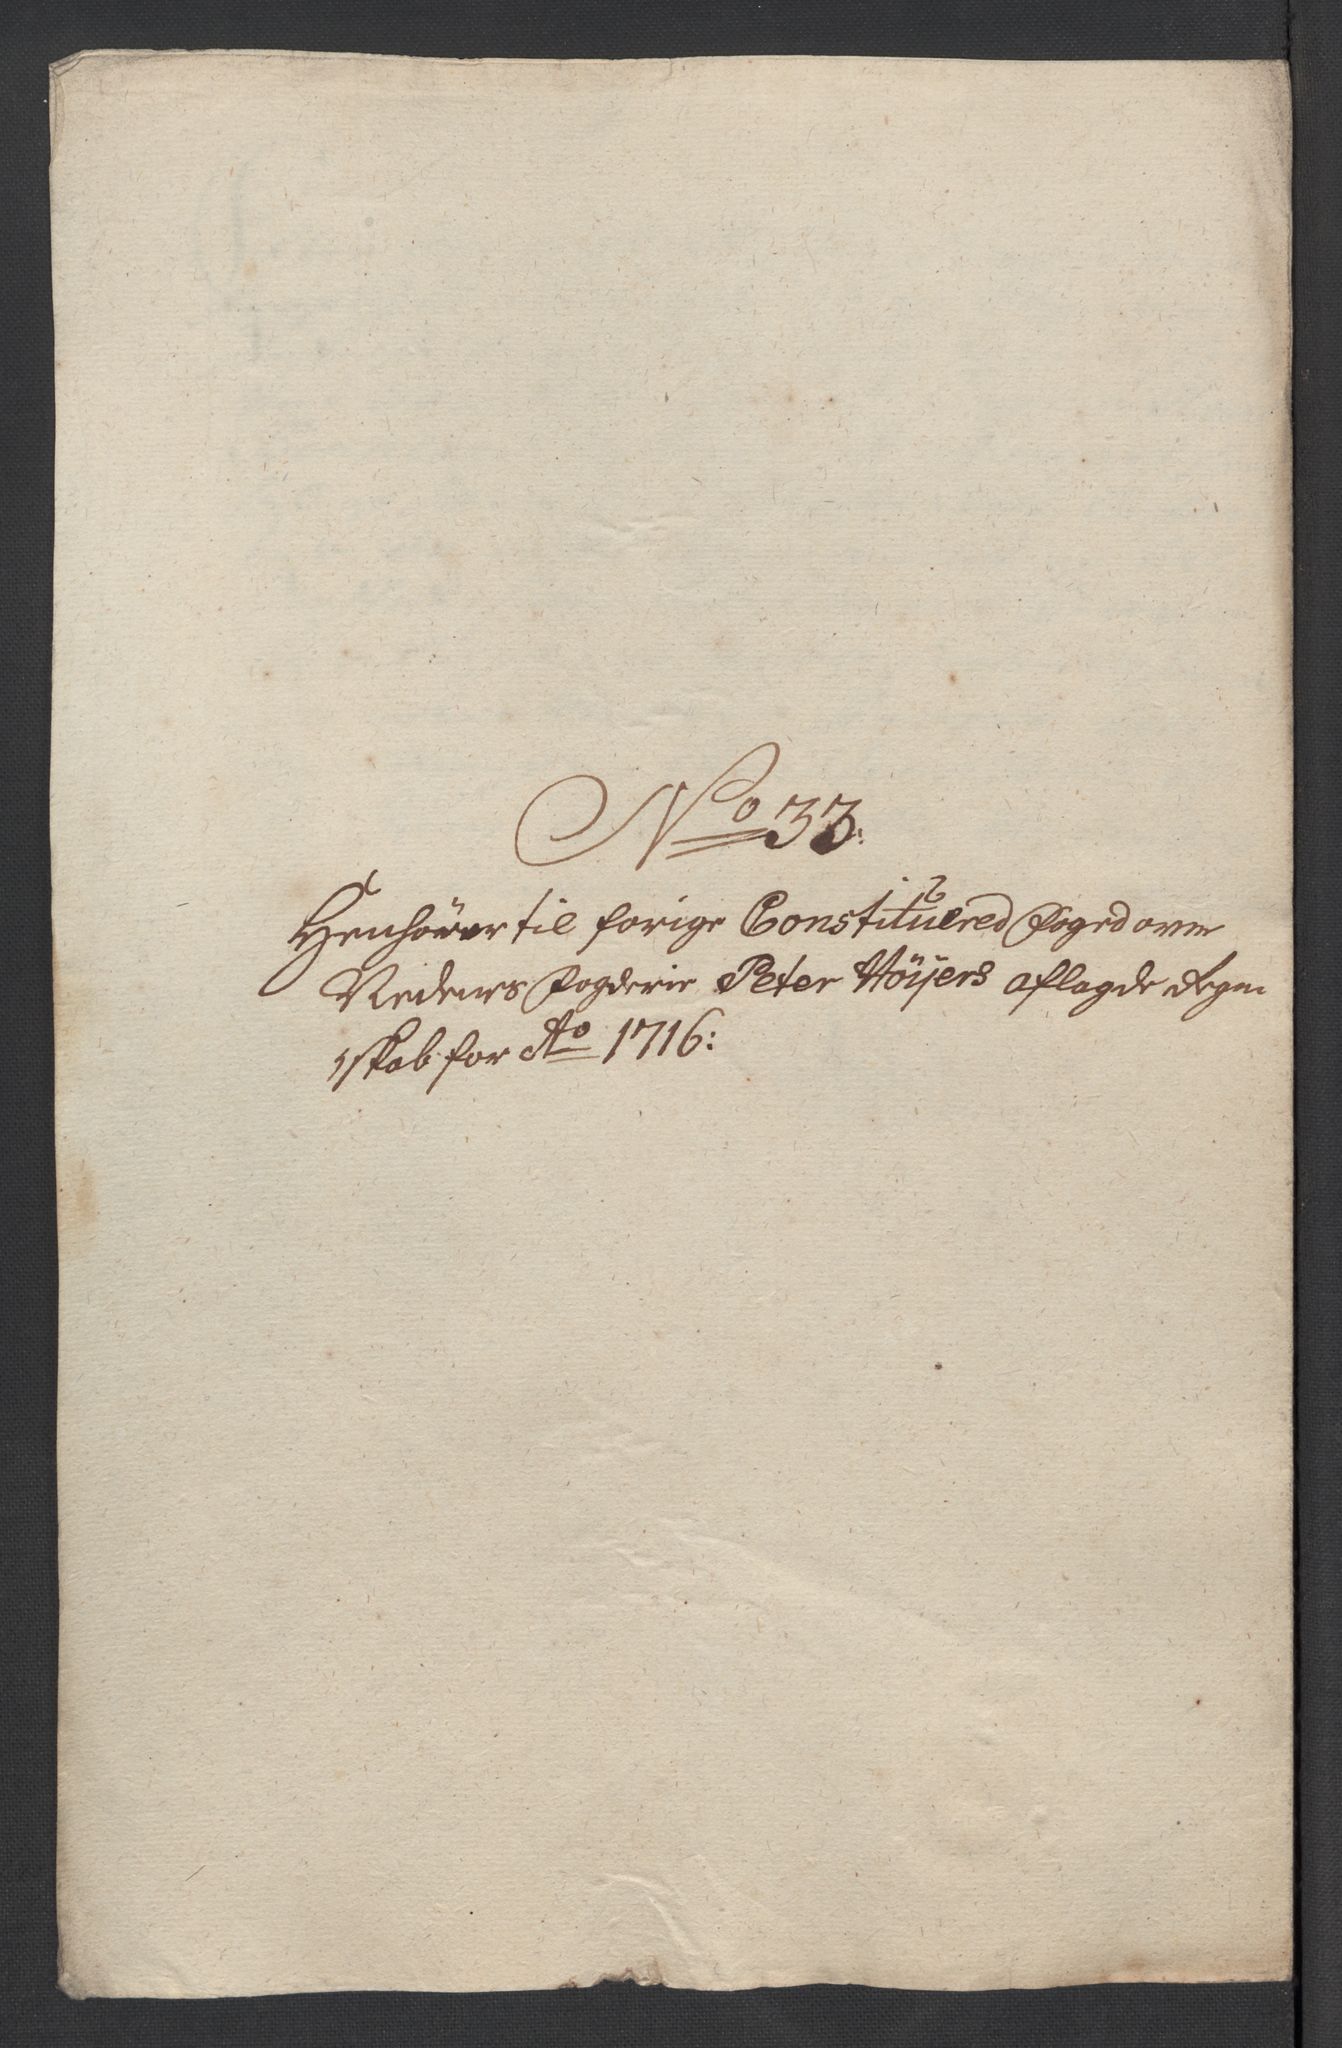 No 33:
Henhörer til forige Constitüered Foged over
Nedenes Fogderie Peter Höÿers aflagde Regn
skab for Ao 1716: